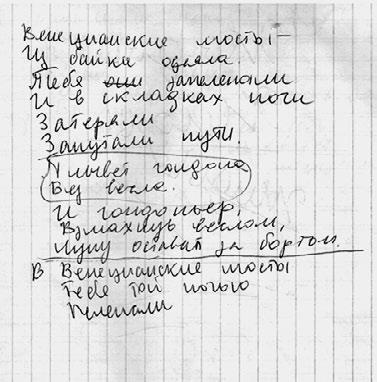 Венецианские мосты –
Из байки одеяла.
Тебя запеленали
И в складках ночи
Затеряли
Запутали пути.
Плывет гондола
Без весла.
И гондольер,
Взмахнув веслом,
Луну оставит за бортом.
В Венецианские мосты
Тебя той ночью
Пеленали